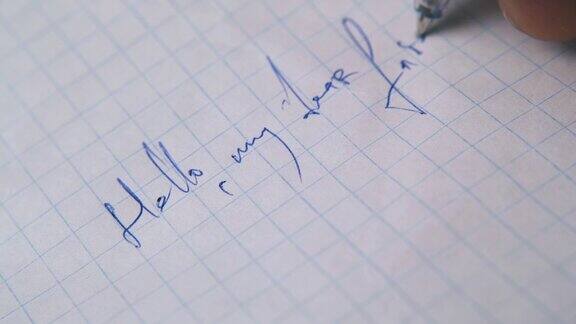 Hello, my dear